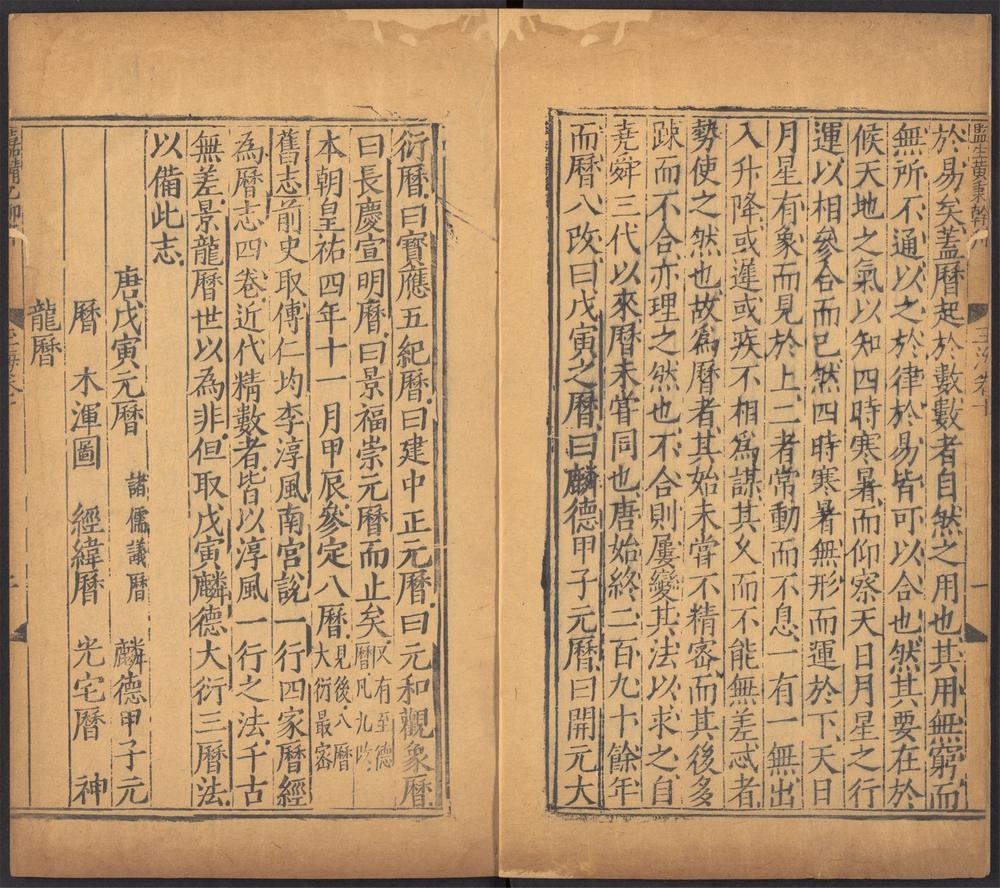 監生黃秉幹
玉海卷十
於易矣蓋曆起於數數者自然之用也其用無窮而
無所不通以之於律於易皆可以合也然其要在於
候天地之氣以知四時寒暑而仰察天日月星之行
運以相參合而已然四時寒暑無形而運於下天日
月星有象而見於上二者常動而不息一有一無出
入升降或遲或疾不相爲謀其乆而不能無差忒者
勢使之然也故爲曆者其始未甞不精宻而其後多
踈而不合亦理之然也不合則屢變其法以求之自
堯舜三代以來曆未甞同也唐始終二百九十餘年
而曆八改曰戊寅之曆曰麟德甲子元曆曰開元大
衍曆曰寶應五紀曆曰建中正元曆曰元和觀象曆
曰長慶宣明曆曰景福崇元曆而止矣又有至德
曆凡九昨
本朝皇祐四年十一月甲辰參定八曆見後八曆
大衍最密
舊志前史取傅仁均李淳風南宮說一行四家曆經
為曆志四卷近代精數者皆以淳風一行之法千古
無差景龍曆世以為非但取戊寅麟德大衍三曆法
以備此志
唐戊寅元曆 諸儒議曆 麟德甲子元
曆 木渾圖 經緯曆 光宅曆 神
龍曆